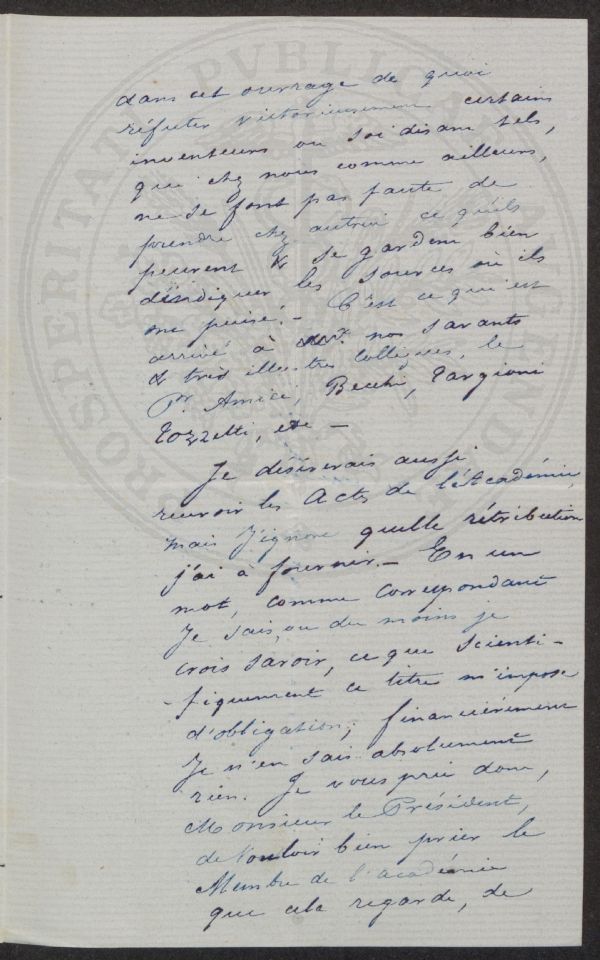 dans cet ouvrage de quoi
réfuter victorieusement certains
inventeurs ou soi disant tels,
qui chez nous comme ailleurs,
ne se font pas faute de
prendre chez autrui ce qu'ils
peuvent & se gardent bien
d'indiquer les sources où ils
ont puisé. - C'est ce qui est
arrivé à nos savants
& très illustres collègues, le
Pr. Amici, Becchi, Targioni
Tozzetti, etc -
Je désirerais aussi
recevoir les Acts de l'Académie,
mais j'ignore quelle rétribution
j'ai à fournir. - En un
mot, comme correspondant
Je sais, ou du moins je
crois savoir, ce que scienti-
-fiquement ce titre m'impose
d'obligation; financièrement
Je n'en sais absolument
rien. Je vous prie donc,
Monsieur le Président,
de Vouloir bien prier le
Membre de l'académie
que cela regarde, de
PVBLICAE
PROSPERITATI